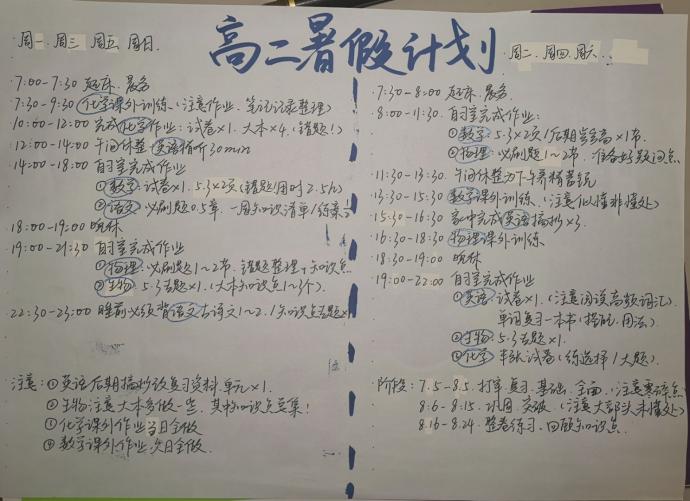 高二暑假计划
周一 周三 周五 周日.
·7:00-7:30 起床.晨务
·7:30-9:30 化学课外训练.(注意作业、笔记记录整理)
·10:00-12:00 完成化学作业:试卷×1.大本×4.(错题!)
·12:00-14:00 午间休整.英语精听30min
·14:00-18:00 自主完成作业
①数学:试卷×1.5.3×2页(错题)用时2.5h)
②语文:必刷题0.5章.一周知识清单1结束!
·18:00-19:00 晚休
·19:00-21:30 自主完成作业
①物理:必刷题1~2节.错题整理+知识点
②生物:5.3专题×1.(大本知识点1~3个).
·22:30-23:00 睡前必须背语文古诗文1~2.1知识点专题×1
注意:①英语后期摘抄改复习资料.单元×1.
②生物注意大本多做一些.其中知识点要集!
①化学课外作业当日全做.
④数学课外作业次日全做.
周二.周四.周六...
·7:30-8:00 起床.晨务.
·8:00-11:30.自主完成作业:
①数学:5.3×2页/后期蓝高×1节.
②物理:必刷题1~2节.准备好题词点
·11:30-13:30.午间休整为下午养精蓄锐
·13:30-15:30 数学课外训练.(注意似懂非懂处)
·15:30-16:30 家中完成英语摘抄×3.
·16:30-18:30 物理课外训练
·18:30-19:00 晚休
·19:00-22:00 自主完成作业
①英语:试卷×1.(注意阅读高频词汇).
单词复习一本书(搭配.用法).
②生物:5.3专题×1.
②化学:半张试卷(练选择1大题).
·阶段:7.5-8.5.打牢.复习.基础.全面.(注意零碎点)
8.6-8.15.巩固.突破.(注意大部头未懂处)
8.16-8.24.整卷练习.回顾知识点.